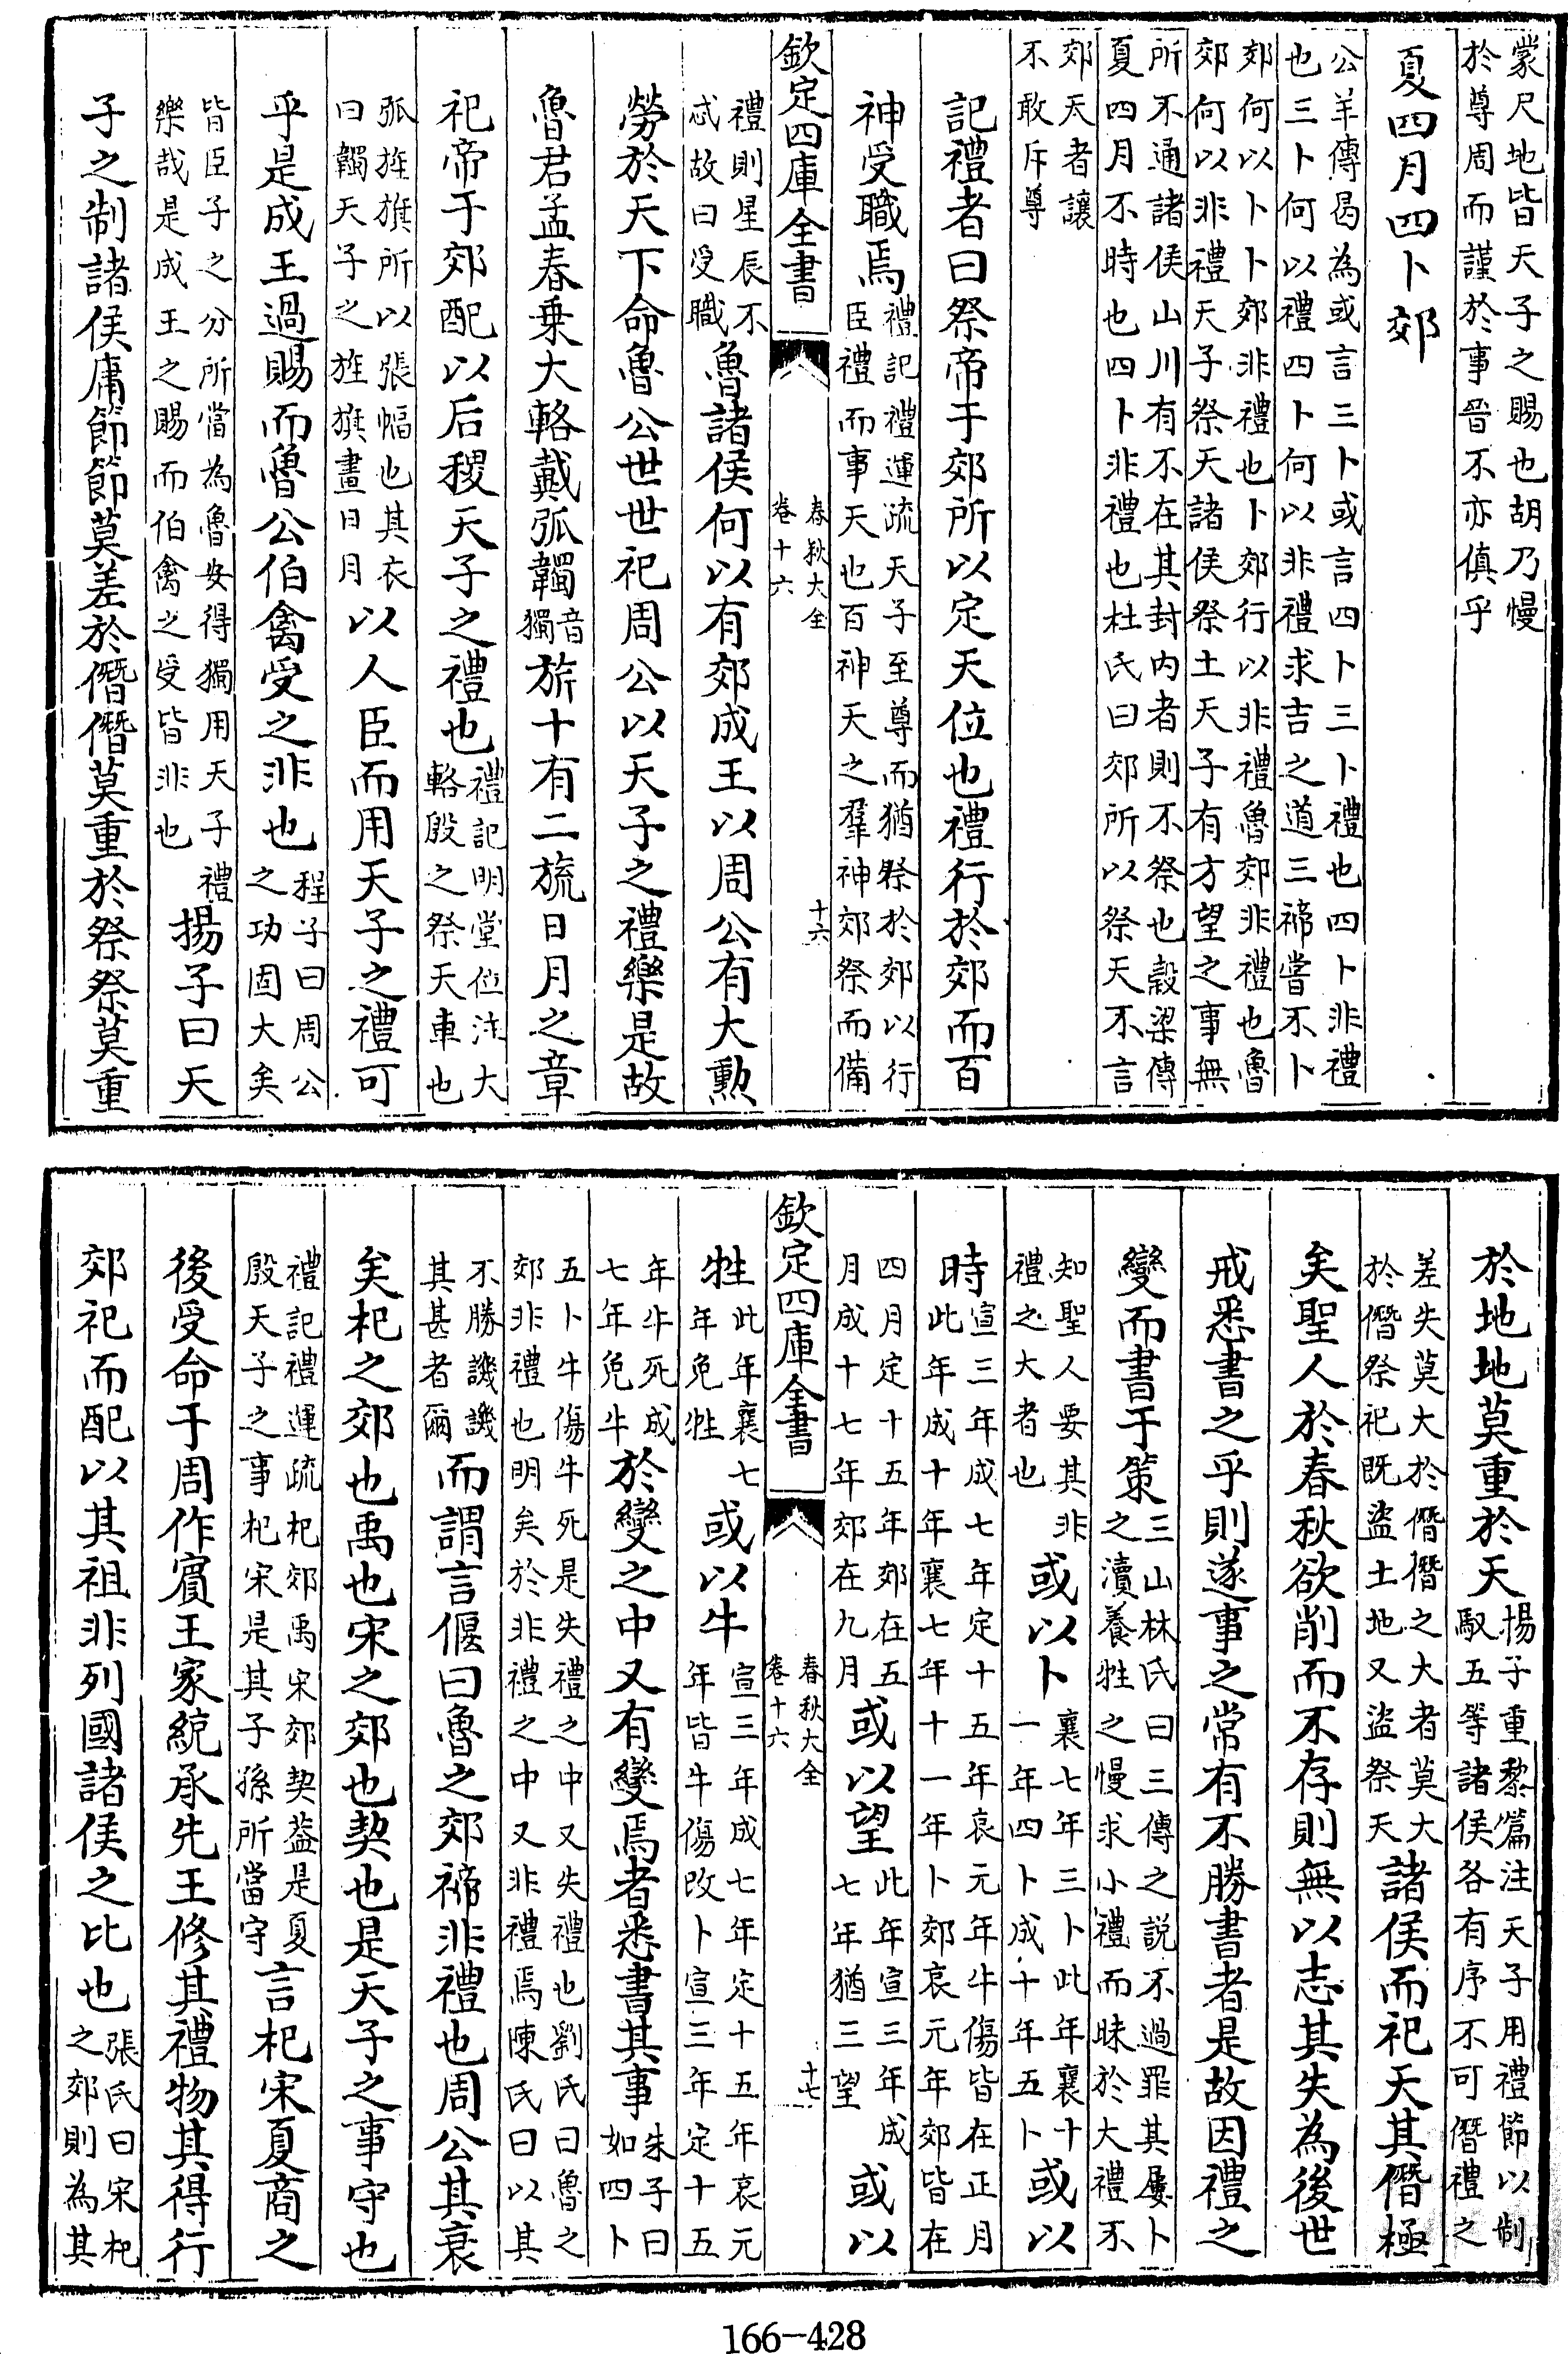 蒙尺地皆天子之賜也胡乃慢
於尊周而謹於事晉不亦傎乎
夏四月四卜郊
公羊傳曷為或言三卜或言四卜三卜禮也四卜非禮
也三卜何以禮四卜何以非禮求吉之道三禘嘗不卜
郊何以卜卜郊非禮也卜郊行以非禮魯郊非禮也魯
郊何以非禮天子祭天諸侯祭土天子有方望之事無
所不通諸侯山川有不在其封內者則不祭也穀梁傳
夏四月不時也四卜非禮也杜氏曰郊所以祭天不言
郊天者讓
不敢斥尊
記禮者曰祭帝于郊所以定天位也禮行於郊而百
神受職焉
禮記禮運疏天子至尊而猶祭於郊以行
臣禮而事天也百神天之羣神郊祭而備
欽定四庫全書
春秋大全
卷十六
十六
禮則星辰不
忒故曰受職
魯諸侯何以有郊成王以周公有大勲
勞於天下命魯公世世祀周公以天子之禮樂是故
魯君孟春乗大輅戴弧韣
音
獨
旂十有二旒日月之章
祀帝于郊配以后稷天子之禮也
禮記明堂位注大
輅殷之祭天車也
弧旌旗所以張幅也其衣
曰韣天子之旌旗畫日月
以人臣而用天子之禮可
乎是成王過賜而魯公伯禽受之非也
程子曰周公
之功固大矣
皆臣子之分所當為魯安得獨用天子禮
樂哉是成王之賜而伯禽之受皆非也
揚子曰天
子之制諸侯庸節節莫差於僭僭莫重於祭祭莫重
於地地莫重於天
揚子重黎篇注天子用禮節以制
馭五等諸侯各有序不可僭禮之
差失莫大於僭僭之大者莫大
於僭祭祀既盜土地又盜祭天
諸侯而祀天其僭極
矣聖人於春秋欲削而不存則無以志其失為後世
戒悉書之乎則遂事之常有不勝書者是故因禮之
變而書于策
三山林氏曰三傳之説不過罪其屢卜
之瀆養牲之慢求小禮而昧於大禮不
知聖人要其非
禮之大者也
或以卜
襄七年三卜此年襄十
一年四卜成十年五卜
或以
時
宣三年成七年定十五年哀元年牛傷皆在正月
此年成十年襄七年十一年卜郊哀元年郊皆在
四月定十五年郊在五
月成十七年郊在九月
或以望
此年宣三年成
七年猶三望
或以
欽定四庫全書
春秋大全
卷十六
十七
牲
此年襄七
年免牲
或以牛
宣三年成七年定十五年哀元
年皆牛傷改卜宣三年定十五
年牛死成
七年免牛
於變之中又有變焉者悉書其事
朱子曰
如四卜
五卜牛傷牛死是失禮之中又失禮也劉氏曰魯之
郊非禮也明矣於非禮之中又非禮焉陳氏曰以其
不勝譏譏
其甚者爾
而謂言偃曰魯之郊禘非禮也周公其衰
矣杞之郊也禹也宋之郊也契也是天子之事守也
禮記禮運疏杞郊禹宋郊契葢是夏
殷天子之事杞宋是其子孫所當守
言杞宋夏商之
後受命于周作賓王家統承先王修其禮物其得行
郊祀而配以其祖非列國諸侯之比也
張氏曰宋杞
之郊則為其
166-428